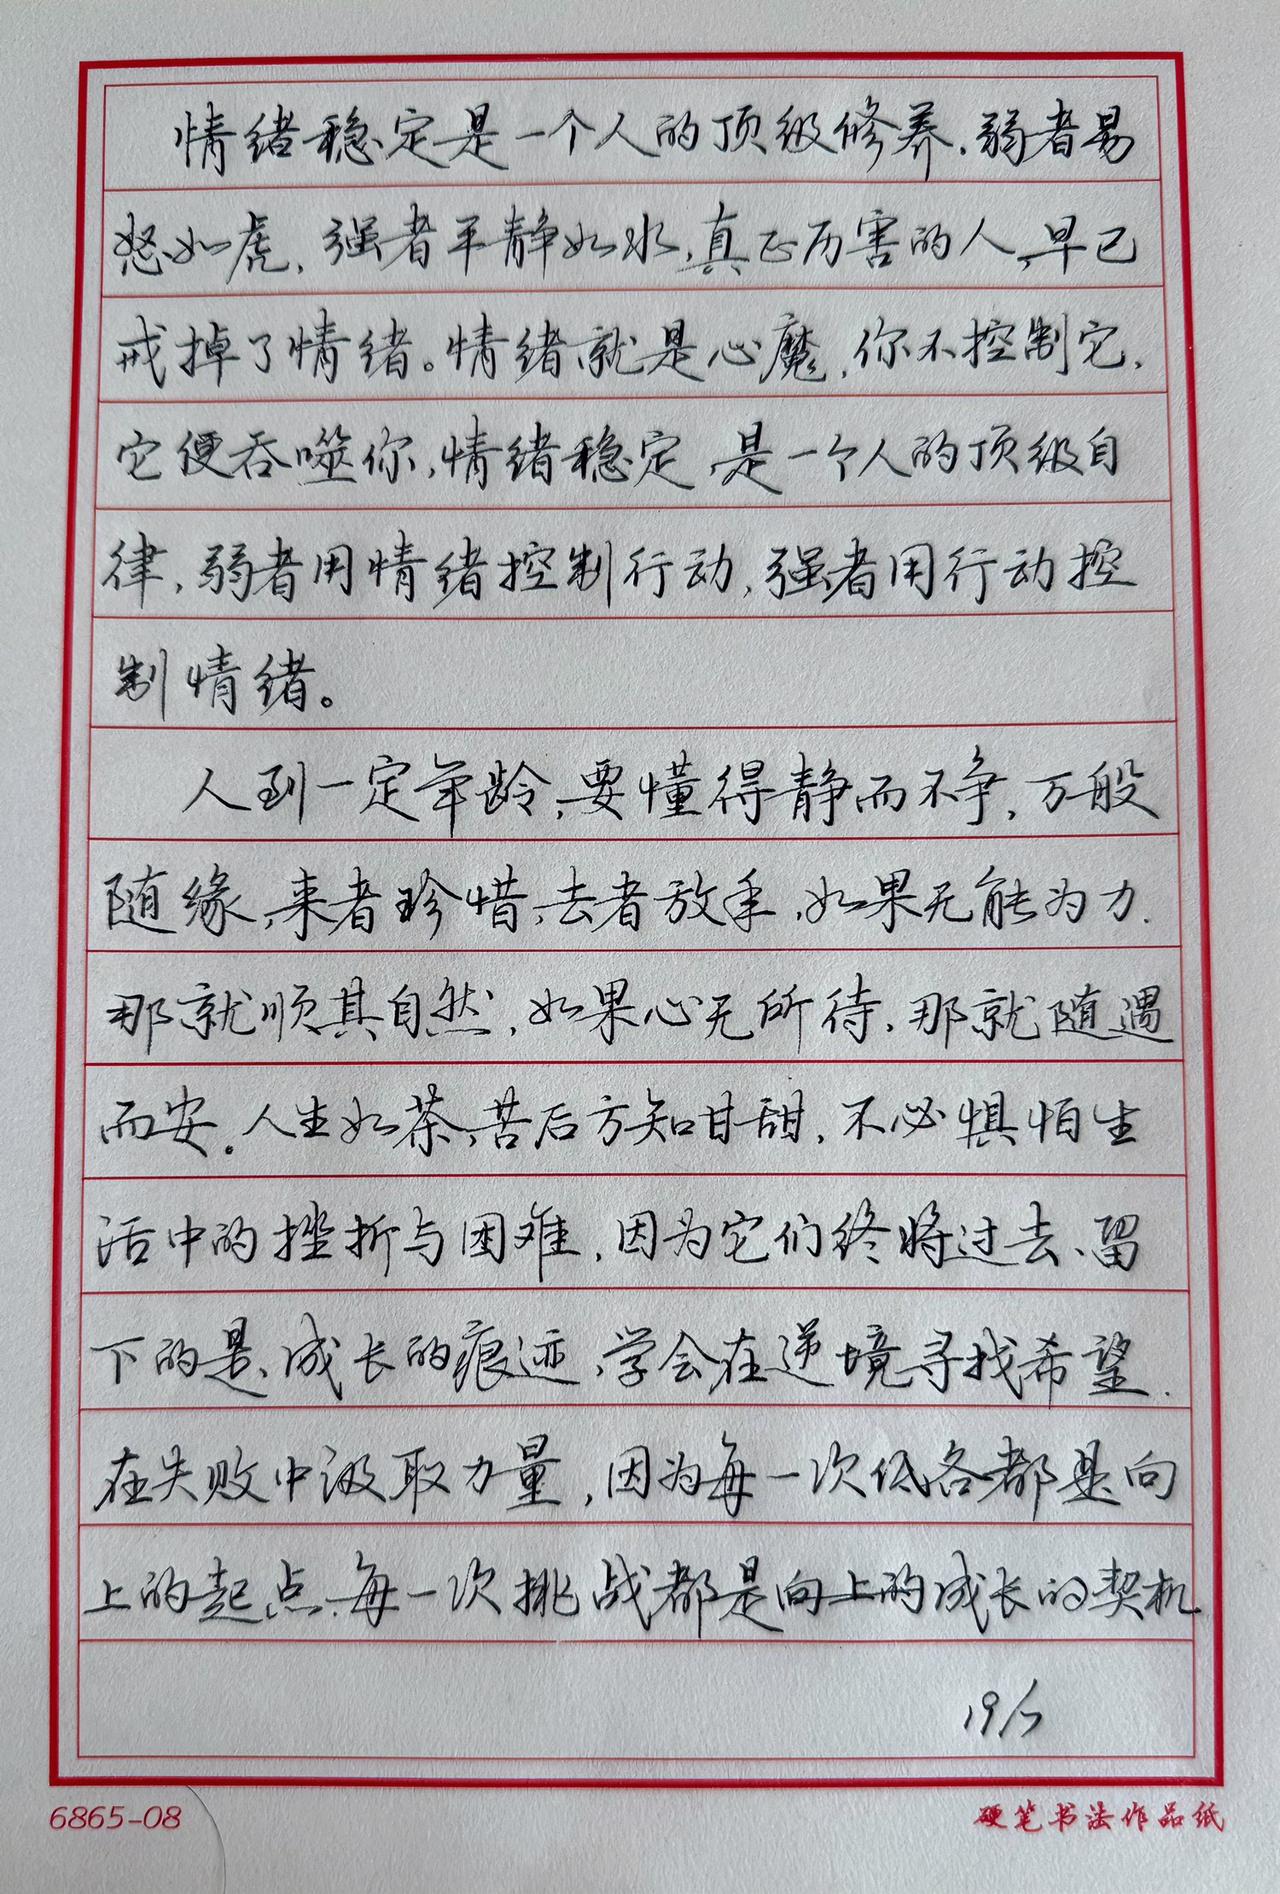 情绪稳定是一个人的顶级修养，弱者易
怒如虎，强者平静如水，真正厉害的人，早已
戒掉了情绪。情绪就是心魔，你不控制它，
它便吞噬你，情绪稳定，是一个人的顶级自
律，弱者用情绪控制行动，强者用行动控
制情绪。
人到一定年龄，要懂得静而不争，万般
随缘，来者珍惜，去者放手，如果无能为力，
那就顺其自然，如果心无所待，那就随遇
而安。人生如茶，苦后方知甘甜，不必惧怕生
活中的挫折与困难，因为它们终将过去、留
下的是、成长的痕迹，学会在逆境寻找希望，
在失败中汲取力量，因为每一次低谷都是向
上的起点，每一次挑战都是向上的成长的契机
19/7
6865-08
硬笔书法作品纸